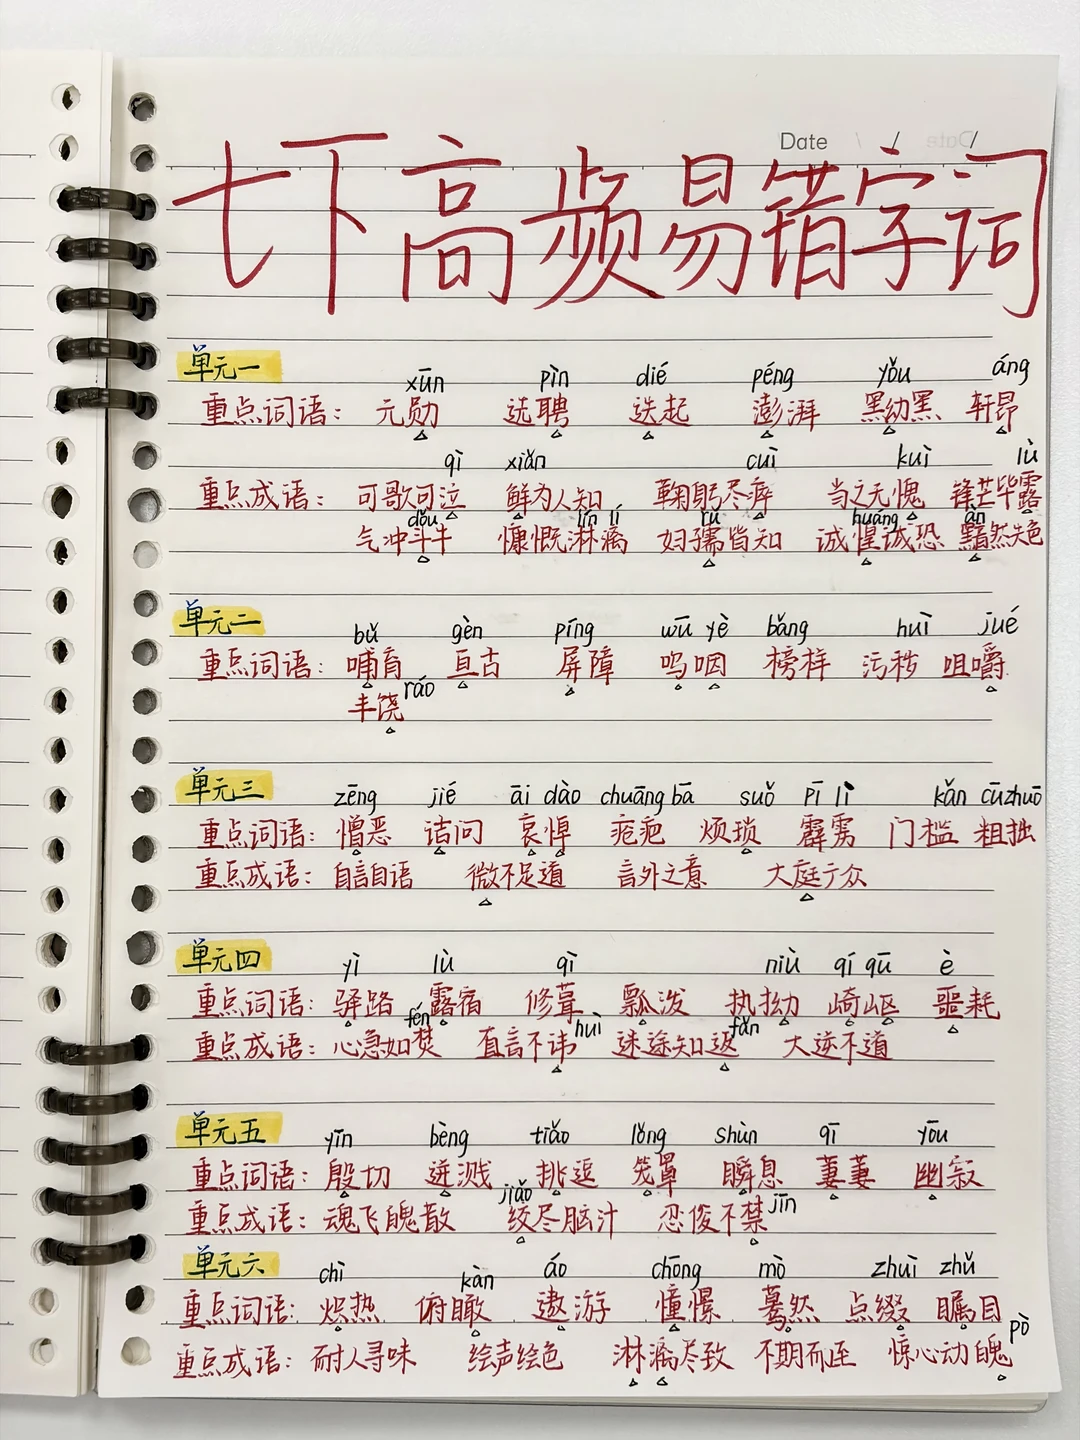 Date / /
七下高频易错字词
单元一
xūn pìn dié péng yǒu áng
重点词语：元勋 选聘 迭起 澎湃 黝黑 轩昂
qì xiǎn cuì kuì lù
重点成语：可歌可泣 鲜为人知 鞠躬尽瘁 当之无愧 锋芒毕露
dǒu lín lí rú huáng àn
气冲斗牛 慷慨淋漓 妇孺皆知 诚惶诚恐 黯然失色
单元二
bǔ gèn píng wū yè bǎng huì jué
重点词语：哺育 亘古 屏障 呜咽 榜样 污秽 咀嚼
ráo
丰饶
单元三
zēng jié āi dào chuāng bā suǒ pī lì kǎn cū zhuō
重点词语：憎恶 诘问 哀悼 疮疤 烦琐 霹雳 门槛 粗拙
重点成语：自言自语 微不足道 言外之意 大庭广众
单元四
yì lù qì niù qí qū è
重点词语：驿路 露宿 修葺 瓢泼 执拗 崎岖 噩耗
fén huì fǎn
重点成语：心急如焚 直言不讳 迷途知返 大逆不道
单元五
yīn bèng tiǎo lǒng shùn qī yōu
重点词语：殷切 迸溅 挑逗 笼罩 瞬息 萋萋 幽寂
jiǎo jīn
重点成语：魂飞魄散 绞尽脑汁 忍俊不禁
单元六
chì kàn áo chōng mò zhuì zhǔ
重点词语：炽热 俯瞰 遨游 憧憬 蓦然 点缀 瞩目
pò
重点成语：耐人寻味 绘声绘色 淋漓尽致 不期而至 惊心动魄